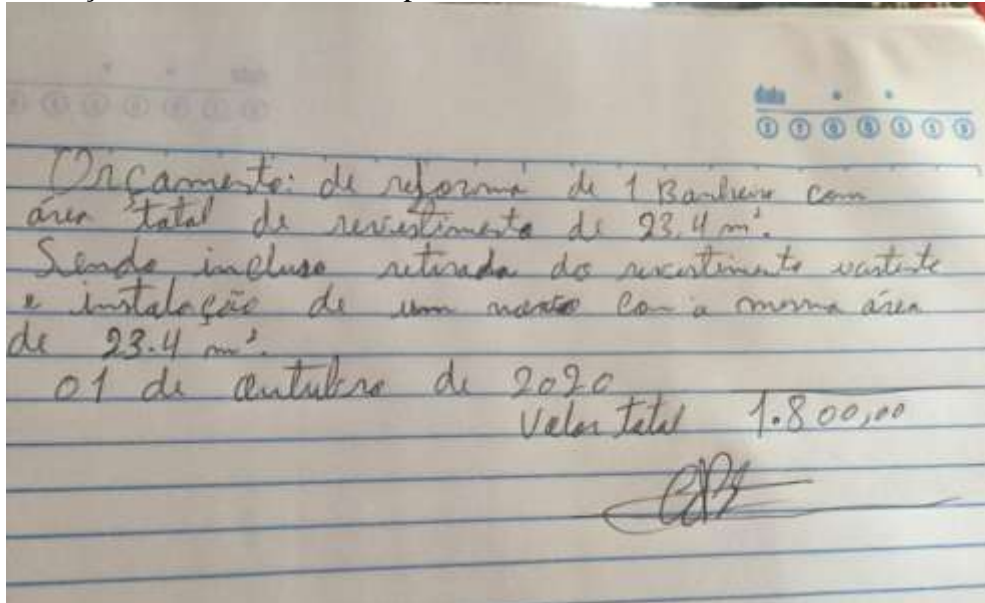 data
Orçamento: de reforma de 1 Banheiro com
área total de revestimento de 23.4 m².
Sendo incluso retirada do revestimento
e instalação de um com a mesma área
de 23.4 m².
01 de outubro de 2020
Valor total 1.800,00